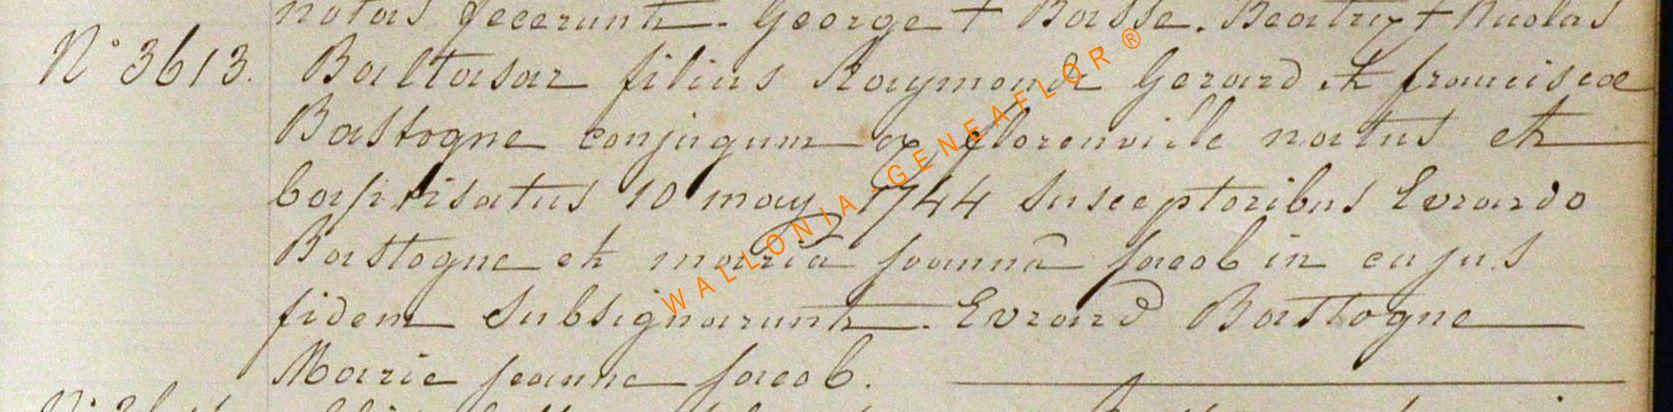 notas fecerunt. George + Basse. Beatrix + Nicolas
N° 3613. Baltasar filius Raymondi Gerard et franciscae
Bastogne conjugum ex florenville natus et
baptisatus 10 may 1744 Susceptoribus Evrardo
Bastogne et maria joanna jacob in cujus
fidem Subsignarunt. Evrard Bastogne
Marie jeanne jacob.
WALLONIA-GENEAFLOR®